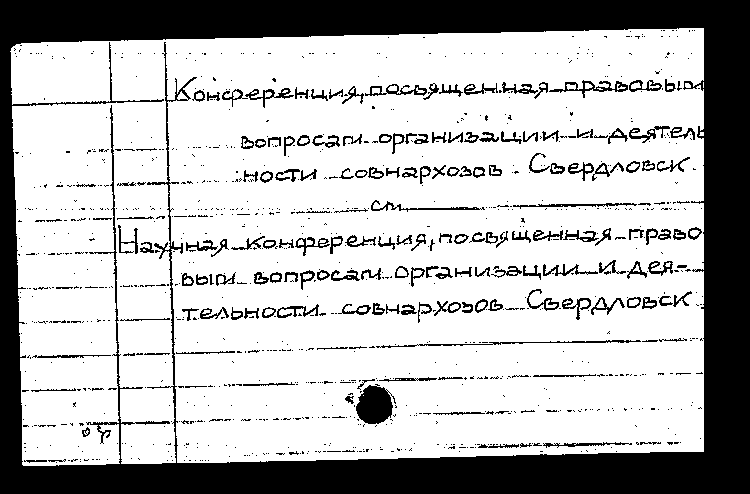 Конференция, посвященная правовым
вопросам организации и деятель
ности совнархозов. Свердловск.
см.
Научная конференция, посвященная право
выги вопросам организации и дея-
тельности совнархозов Свердловск